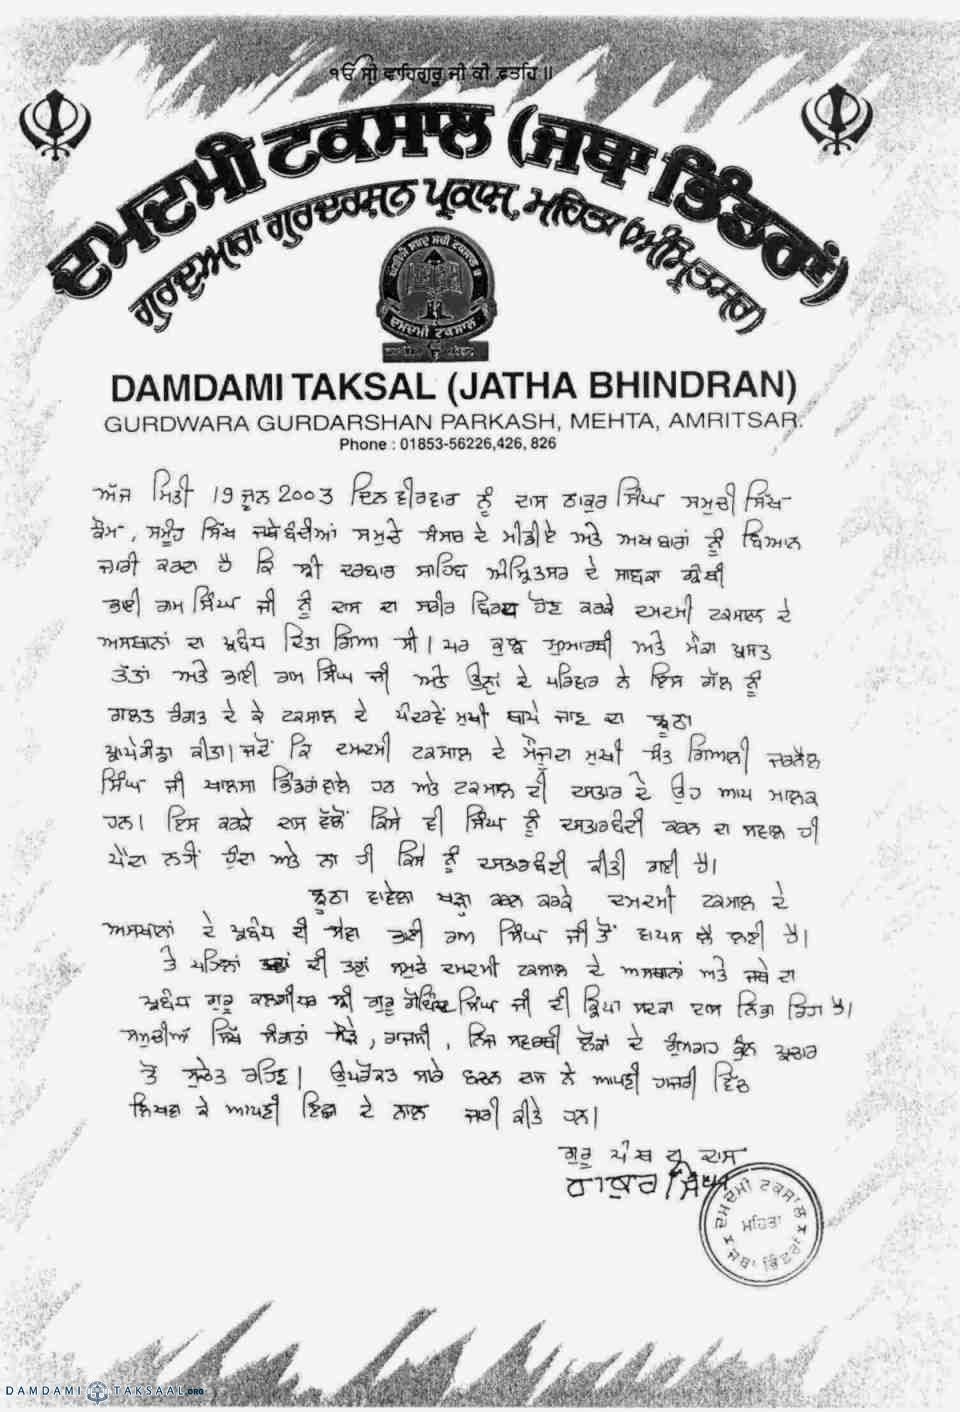 ੴ ਸ੍ਰੀ ਵਾਹਿਗੁਰੂ ਜੀ ਕੀ ਫ਼ਤਹਿ॥
ਦਮਦਮੀ ਟਕਸਾਲ (ਜਥਾ ਭਿੰਡਰਾਂ)
ਗੁਰਦੁਆਰਾ ਗੁਰਦਰਸ਼ਨ ਪ੍ਰਕਾਸ਼, ਮਹਿਤਾ (ਅੰਮ੍ਰਿਤਸਰ)
ਦਮਦਮੀ ਟਕਸਾਲ
DAMDAMI TAKSAL (JATHA BHINDRAN)
GURDWARA GURDARSHAN PARKASH, MEHTA, AMRITSAR.
Phone : 01853-56226,426, 826
ਅੱਜ ਮਿਤੀ 19 ਜੂਨ 2003 ਦਿਨ ਵੀਰਵਾਰ ਨੂੰ ਦਾਸ ਠਾਕੁਰ ਸਿੰਘ ਸਮੁਚੀ ਸਿੱਖ
ਕੌਮ, ਸਮੂੰਹ ਸਿੱਖ ਜਥੇਬੰਦੀਆਂ ਸਮੁਚੇ ਸੰਸਾਰ ਦੇ ਮੀਡੀਏ ਅਤੇ ਅਖਬਾਰਾਂ ਨੂੰ ਬਿਆਨ
ਜਾਰੀ ਕਰਦਾ ਹੈ ਕਿ ਸ੍ਰੀ ਦਰਬਾਰ ਸਾਹਿਬ ਅੰਮ੍ਰਿਤਸਰ ਦੇ ਸਾਬਕਾ ਗ੍ਰੰਥੀ
ਭਾਈ ਰਾਮ ਸਿੰਘ ਜੀ ਨੂੰ ਦਾਸ ਦਾ ਸਰੀਰ ਬਿਰਧ ਹੋਣ ਕਰਕੇ ਦਮਦਮੀ ਟਕਸਾਲ ਦੇ
ਅਸਥਾਨਾਂ ਦਾ ਪ੍ਰਬੰਧ ਦਿਤਾ ਗਿਆ ਸੀ। ਪਰ ਕੁਝ ਸੁਆਰਥੀ ਅਤੇ ਮੌਕਾ ਪ੍ਰਸਤ
ਤੱਤਾਂ ਅਤੇ ਭਾਈ ਰਾਮ ਸਿੰਘ ਜੀ ਅਤੇ ਉਨ੍ਹਾਂ ਦੇ ਪਰਿਵਾਰ ਨੇ ਇਸ ਗੱਲ ਨੂੰ
ਗਲਤ ਰੰਗਤ ਦੇ ਕੇ ਟਕਸਾਲ ਦੇ ਪੰਦਰਵੇਂ ਮੁਖੀ ਥਾਪੇ ਜਾਣ ਦਾ ਝੂਠਾ
ਪ੍ਰਾਪੇਗੰਡਾ ਕੀਤਾ। ਜਦੋਂ ਕਿ ਦਮਦਮੀ ਟਕਸਾਲ ਦੇ ਮੌਜੂਦਾ ਮੁਖੀ ਸੰਤ ਗਿਆਨੀ ਜਰਨੈਲ
ਸਿੰਘ ਜੀ ਖਾਲਸਾ ਭਿੰਡਰਾਂਵਾਲੇ ਹਨ ਅਤੇ ਟਕਸਾਲ ਦੀ ਦਸਤਾਰ ਦੇ ਉਹ ਆਪ ਮਾਲਕ
ਹਨ। ਇਸ ਕਰਕੇ ਦਾਸ ਵੱਲੋਂ ਕਿਸੇ ਵੀ ਸਿੰਘ ਨੂੰ ਦਸਤਾਰਬੰਦੀ ਕਰਨ ਦਾ ਸਵਾਲ ਹੀ
ਪੈਦਾ ਨਹੀਂ ਹੁੰਦਾ ਅਤੇ ਨਾ ਹੀ ਕਿਸੇ ਨੂੰ ਦਸਤਾਰਬੰਦੀ ਕੀਤੀ ਗਈ ਹੈ।
ਝੂਠਾ ਵਾਵੇਲਾ ਖੜ੍ਹਾ ਕਰਨ ਕਰਕੇ ਦਮਦਮੀ ਟਕਸਾਲ ਦੇ
ਅਸਥਾਨਾਂ ਦੇ ਪ੍ਰਬੰਧ ਦੀ ਸੇਵਾ ਭਾਈ ਰਾਮ ਸਿੰਘ ਜੀ ਤੋਂ ਵਾਪਸ ਲੈ ਲਈ ਹੈ।
ਤੇ ਪਹਿਲਾਂ ਦੀ ਤਰ੍ਹਾਂ ਸਮੁਚੇ ਦਮਦਮੀ ਟਕਸਾਲ ਦੇ ਅਸਥਾਨਾਂ ਅਤੇ ਜਥੇ ਦਾ
ਪ੍ਰਬੰਧ ਗੁਰੂ ਕਲਗੀਧਰ ਸ੍ਰੀ ਗੁਰੂ ਗੋਬਿੰਦ ਸਿੰਘ ਜੀ ਦੀ ਕ੍ਰਿਪਾ ਸਦਕਾ ਦਾਸ ਨਿਭਾ ਰਿਹਾ ਹੈ।
ਸਮੁਚੀਆਂ ਸਿੱਖ ਸੰਗਤਾਂ ਸੌੜੇ, ਰਾਜਸੀ, ਨਿਜ ਸਵਾਰਥੀ ਲੋਕਾਂ ਦੇ ਗੁੰਮਰਾਹ ਕੁੰਨ ਪ੍ਰਚਾਰ
ਤੋਂ ਸੁਚੇਤ ਰਹਿਣ। ਉਪਰੋਕਤ ਸਾਰੇ ਬਚਨ ਦਾਸ ਨੇ ਆਪਣੀ ਹਾਜ਼ਰੀ ਵਿੱਚ
ਲਿਖਵਾ ਕੇ ਆਪਣੀ ਇਛਾ ਦੇ ਨਾਲ ਜਾਰੀ ਕੀਤੇ ਹਨ।
ਗੁਰੂ ਪੰਥ ਦਾ ਦਾਸ
ਠਾਕੁਰ ਸਿੰਘ
ਦਮਦਮੀ ਟਕਸਾਲ
ਮਹਿਤਾ
ਜਥਾ ਭਿੰਡਰਾਂ
DAMDAMI TAKSAAL.ORG